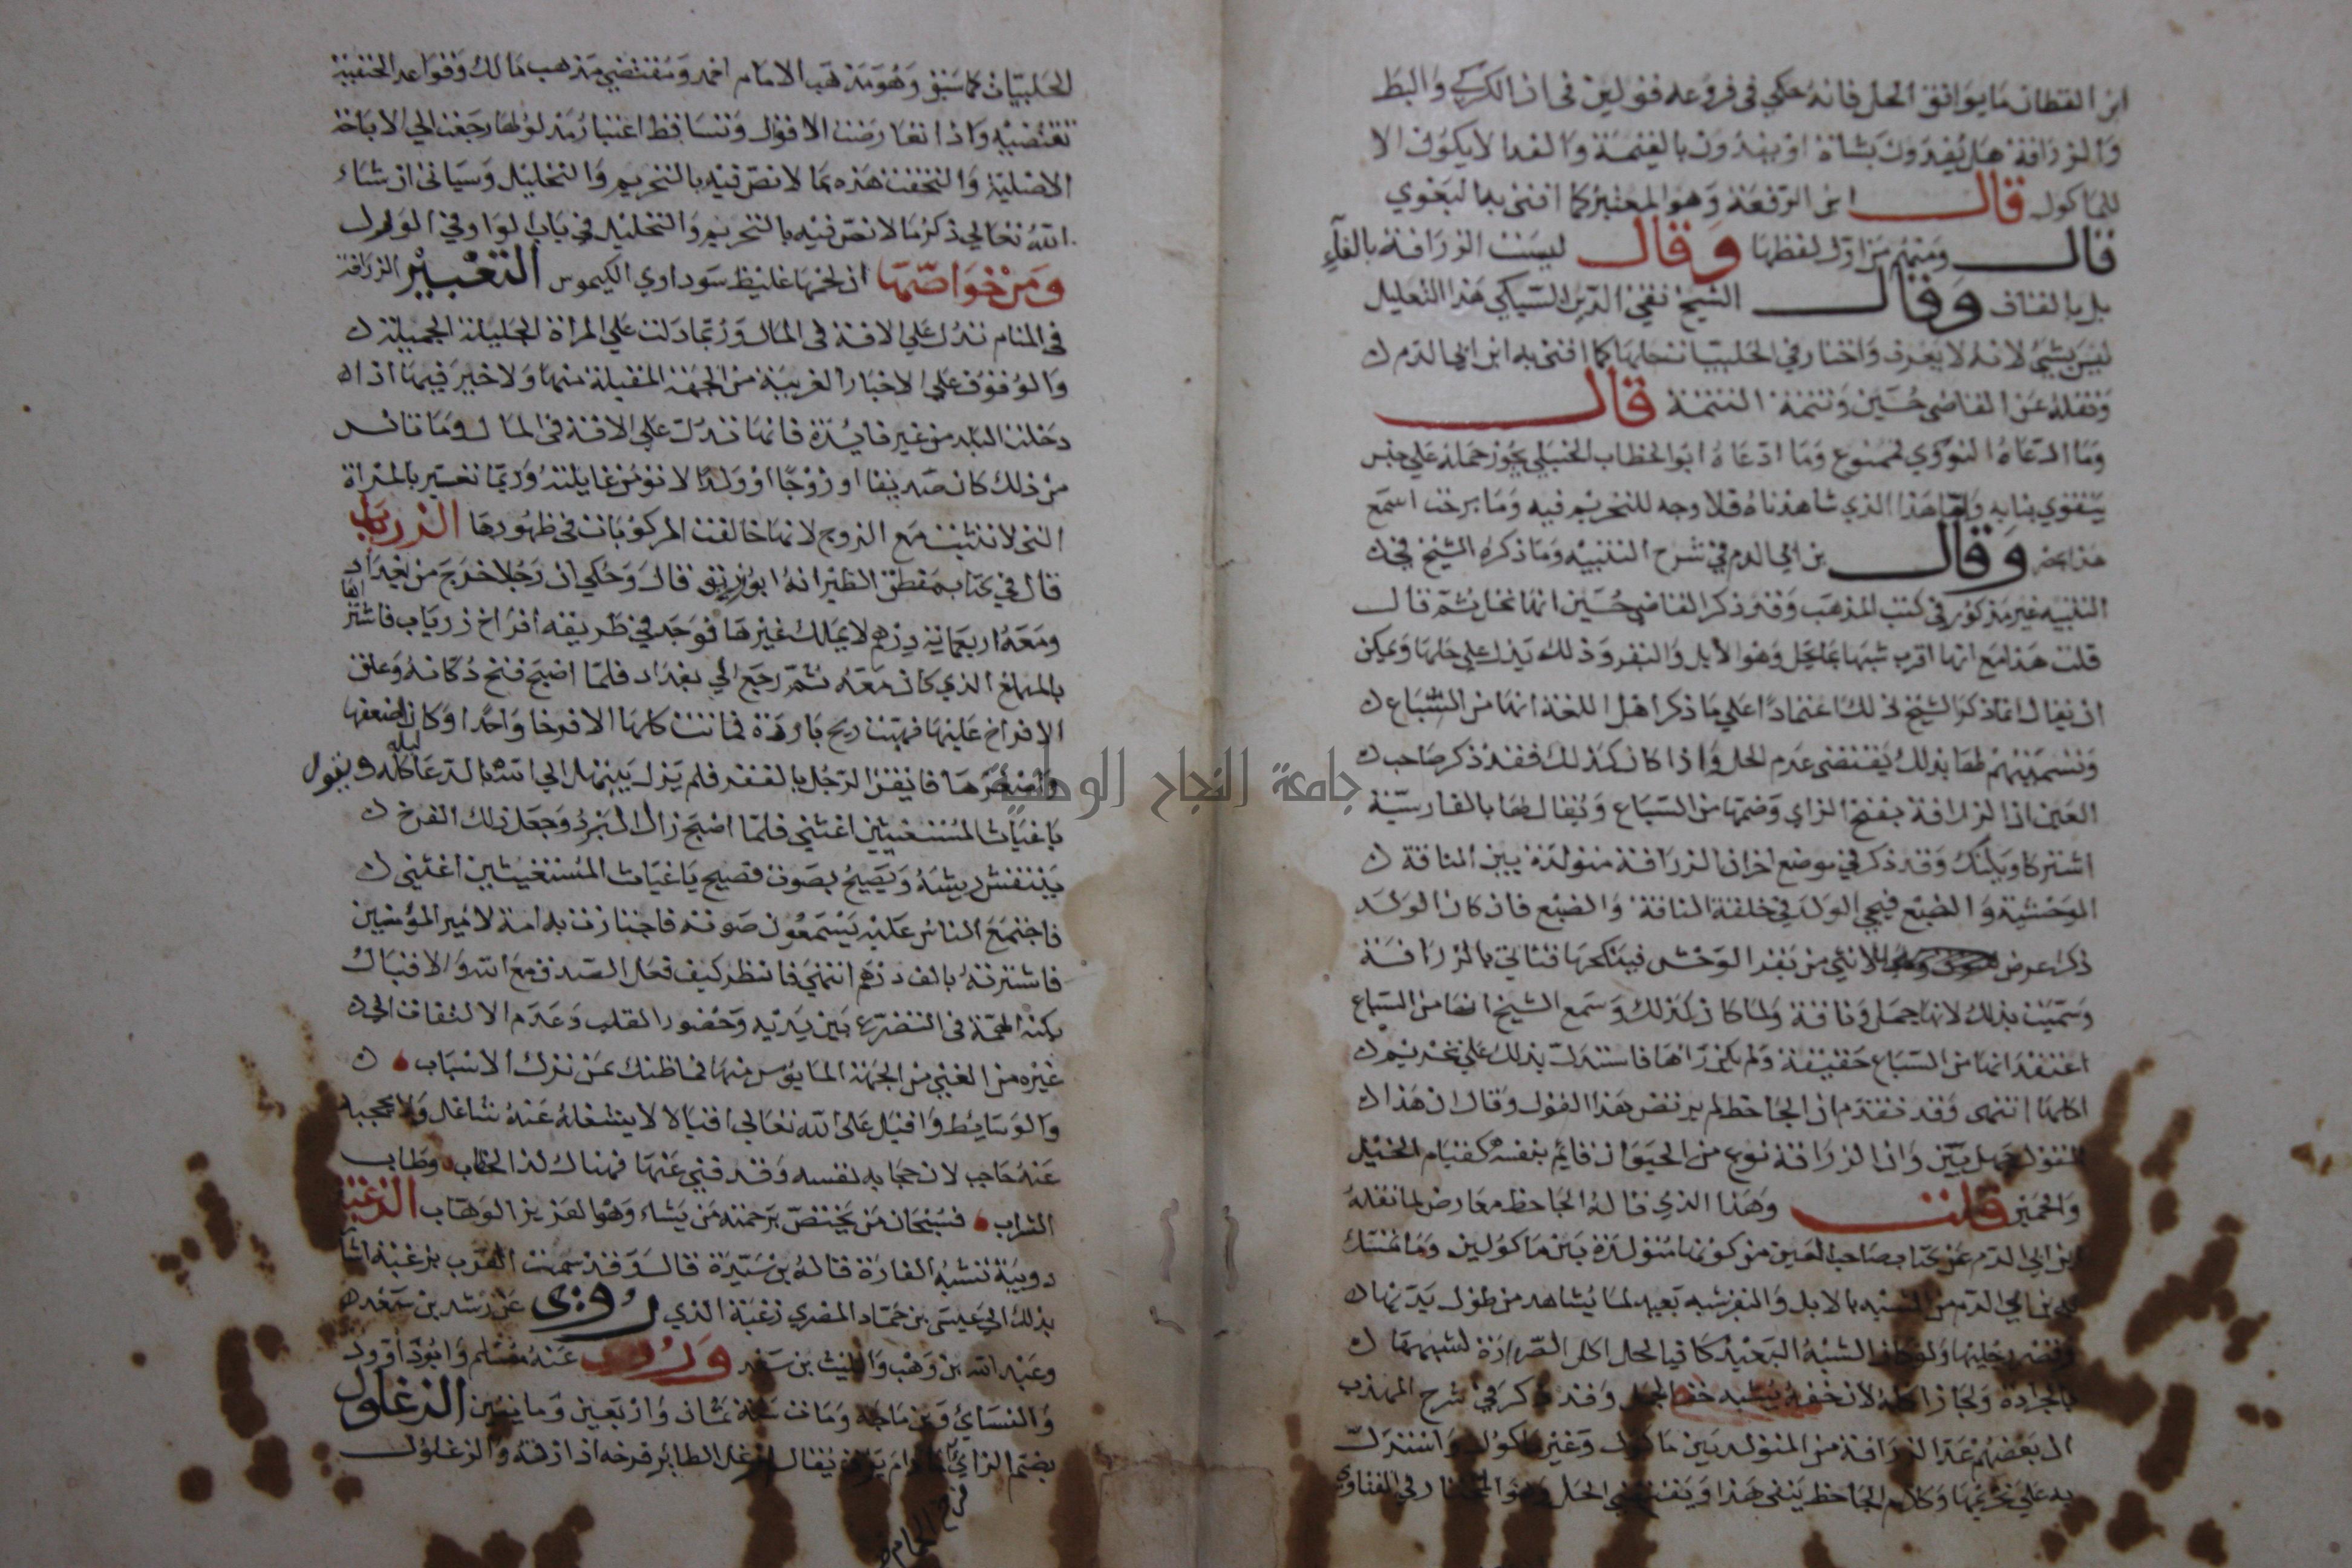 ابن القطان ما يوافق الحل فانه حكي في فروعه قولين في ان الكركي والبط
والزرافة هل يفدون بشاة او يفدون بالقيمة والفدا لا يكون الا
للماكول قال ابن الرفعة وهو المعتبر كما افتى به البغوي
قال ومنهم من اول لفظها وقال ليست الزرافة بالفآء
بل بالقاف وقال الشيخ تقي الدين السبكي هذا التعليل
ليس بشي لانه لا يعرف واختار في الحلبيات حلها كما افتى به ابن ابي الدم
ونقله عن القاضي حسين وتتمة التتمة قال
وما ادعاه النووي ممنوع وما ادعاه ابو الخطاب الحنبلي يجوز حمله على جنس
يتقوي بنابه واما هذا الذي شاهدناه فلا وجه للتحريم فيه وما برحت اسمع
هذا بمصر وقال بن ابي الدم في شرح التنبيه وما ذكره الشيخ في
التنبيه غير مذكور في كتب المذهب وقد ذكر القاضي حسين انها تحل ثم قال
قلت هذا مع انها اقرب شبها بما يحل وهو الابل والبقر وذلك يدل على حلها ويمكن
ان يقال انما ذكر الشيخ ذلك اعتمادا على ما ذكر اهل اللغة انها من السباع
وتسميتهم لها بذلك يقتضي عدم الحل واذا كان كذلك فقد ذكر صاحب
العين ان الزرافة بفتح الزاي وضمها من السباع ويقال لها بالفارسية
اشتركاوبلنك وقد ذكر في موضع اخر ان الزرافة متولدة بين الناقة
الوحشية والضبع فيجي الولد في خلقة الناقة والضبع فان كان الولد
ذكرا عرض للانثى من بقر الوحش فينكحها فتاتي بالزرافة
وسميت بذلك لانها جمل وناقة ولما كان كذلك وسمع الشيخ انها من السباع
اعتقد انها من السباع حقيقة ولم يكن رآها فاستدل بذلك على تحريم
اكلها انتهى وقد تقدم ان الجاحظ لم يرتض هذا القول وقال ان هذا
القول جهل بين وان الزرافة نوع من الحيوان قايم بنفسه كقيام الخيل
والحمير قلت وهذا الذي قاله الجاحظ معارض لما نقله
ابن ابي الدم عن كتاب صاحب العين من كونها متولدة بين ماكولين وما تمسك
به بن ابي الدم من الشبه بالابل والبقر شبه بعيد لما يشاهد من طول يديها
وقصر رجليها ولو كان الشبه البعيد كافيا لحل اكل الصرارة لشبهها
بالجرادة ولجاز اكله لان خفه يشبه خف الجمل وقد ذكر في شرح المهذب
ان بعضهم عد الزرافة من المتولد بين ماكول وغير ماكول واستدل
به على تحريمها وكلام الجاحظ ينفي هذا ويقتضي الحل وهو المختار في الفتاوى
الحلبيات كما سبق وهو مذهب الامام احمد ومقتضى مذهب مالك وقواعد الحنفية
تقتضيه واذا تعارضت الاقوال وتساقط اعتبار مدلولها رجعنا الى الاباحة
الاصلية والتحقت هذه بما لا نص فيه بالتحريم والتحليل وسياتى ان شاء
الله تعالى ذكر ما لا نص فيه بالتحريم والتحليل في باب الواو في الورل
ومن خواصها ان لحمها غليظ سوداوي الكيموس التعبير الزرافة
في المنام تدل على الافة في المال وربما دلت على المراة الجليلة الجميلة
والوقوف على الاخبار الغريبة من الجهة المقبلة منها ولا خير فيها اذا
دخلت البلد من غير فايدة فانها تدل على الافة في المال وما تانس
من ذلك كان صديقا او زوجا او ولدا لا تومن غايلته وربما تعبر بالمراة
التي لا تثبت مع الزوج لانها خالفت المركوبات في ظهورها الزرياب
قال في كتاب منطق الطير انه ابو زريق قال وحكي ان رجلا خرج من بغداد
ومعه اربعماية درهم لا يملك غيرها فوجد في طريقه افراخ زرياب فاشتراها
بالمبلغ الذي كان معه ثم رجع الى بغداد فلما اصبح فتح دكانه وعلق
الافراخ عليها فهبت ريح باردة فماتت كلها الا فرخا واحدا وكان اضعفها
واصغرها فايقن الرجل بالفقر فلم يزل يبتهل الى الله بالدعا ليله كله ويقول
يا غياث المستغيثين اغثني فلما اصبح زال البرد وجعل ذلك الفرخ
ينتفش ريشه ويصيح بصوت فصيح يا غياث المستغيثين اغثني
فاجتمع الناس عليه يستمعون صوته فاجتازت به امة لامير المؤمنين
فاشترته بالف درهم انتهى فانظر كيف فعل الصدق مع الله والاقبال
بكنه الهمة في التضرع بين يديه وحضور القلب وعدم الالتفات الى
غيره من الغنى من الجهة المايوس منها فما ظنك بمن ترك الاسباب
والوسايط واقبل على الله تعالى اقبالا لا يشغله عنه شاغل ولا يحجبه
عنه حاجب لان حجابه نفسه وقد فني عنها فهناك لذ الخطاب وطاب
الشراب فسبحان من يختص برحمته من يشاء وهو العزيز الوهاب الزغبة
دويبة تشبه الفارة قاله بن سيدة قال وقد سمت العرب بزغبة اشار
بذلك الى عيسى بن حماد المصري زغبة الذي روى عن رشد بن سعد
وعبد الله بن وهب والليث بن سعد وروى عنه مسلم وابو داوود
والنساي وبن ماجه ومات سنة ثمان واربعين ومايتين الزغلول
بضم الزاي ما دام يزق يقال ازغل الطائر فرخه اذا زقه والزغلول
فرخ الحمام
جامعة النجاح الوطنية